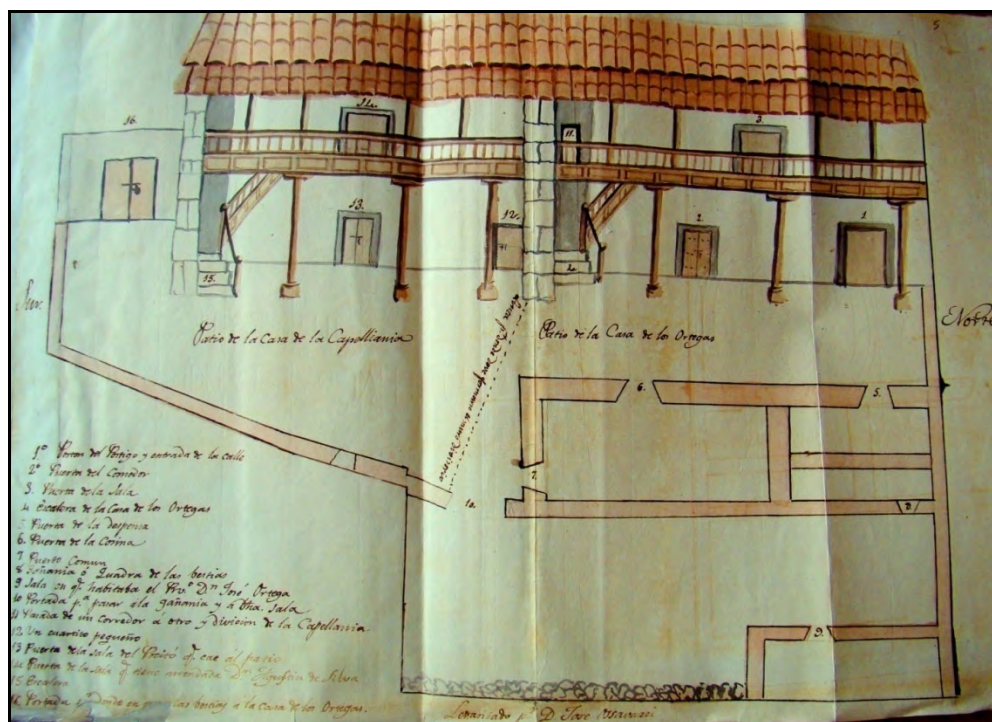 5
16.
14.
11.
3.
13.
12.
2.
1.
15.
Sur.
Norte
Patio de la Casa de la Capellania
Patio de la Casa de los Ortegas
6.
5.
7.
10.
8
9.
1º Porton del Postigo y entrada de la calle
2º Puerta del Comedor
3. Puerta de la Sala
4 Escalera de la Casa de los Ortegas
5 Puerta de la despensa
6. Puerta de la Cosina
7 Puerta Comun
8 Gañania ó Quadra de las bestias
9 Sala en qᵉ habitaba el Prv.º Dⁿ José Ortega
10 Portada pᵃ pasar á la gañania y á dha. Sala
11 Pasada de un corredor á otro y divicion de la Capellania
12 Un cuartito pequeño
13 Puerta de la sala del qᵉ cae al patio
14 Puerta de la sala qᵉ tiene arrendada Dⁿ Agustin de Silva
15 Escalera
16 Portada pʳ donde las bestias á la Casa de los Ortegas.
Levantado pʳ D. Jose